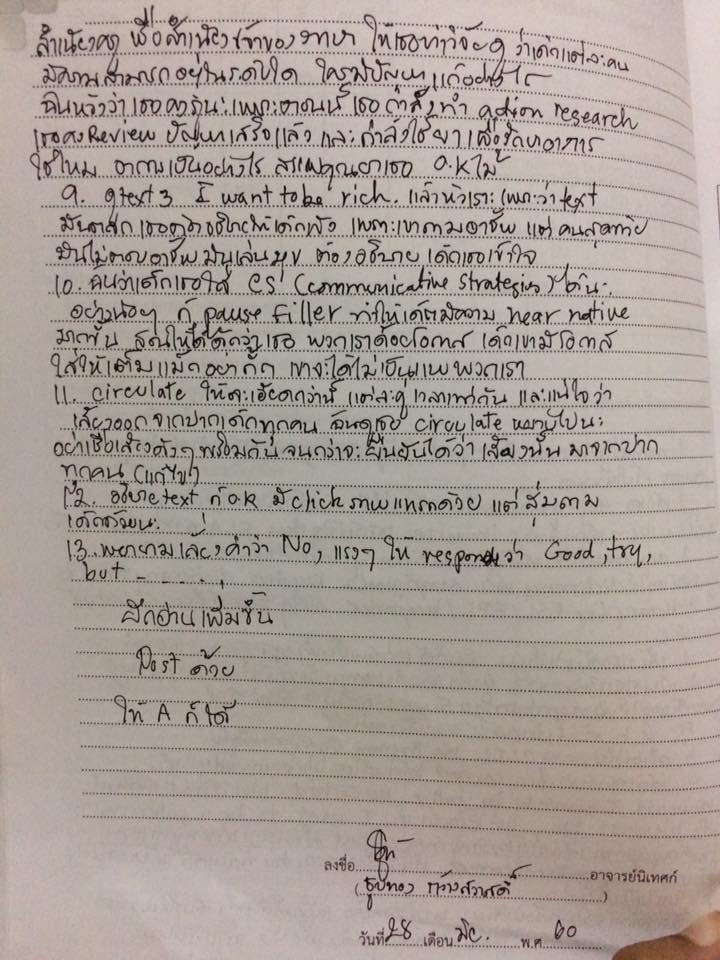 สำเนียงครู เพื่อสำเนียงเจ้าของภาษา ให้เธอทำวิจัยดูว่าเด็กแต่ละคน
มีความสามารถอยู่ในระดับใด ใครมีปัญหา แก้อย่างไร
ฉันหวังว่าเธอคงรู้นะเพราะตอนนี้เธอกำลังทำ action research
เธอคง Review ปัญหาเสร็จแล้ว และกำลังใช้ยาเพื่อรักษาอาการ
ใช่ไหม อาการเป็นอย่างไร สรรพคุณยาเธอ O.K ไม๊
9. ดู text 3 I want to be rich. แล้วหัวเราะ เพราะว่า text
มันตลก เธอควรอธิบายให้เด็กฟัง เพราะเขาถามอาชีพ แต่คนสุดท้าย
มันไม่ตอบอาชีพ มันเล่นมุข ต้องอธิบาย เด็กเธอเข้าใจ
10. ฉันว่าเด็กเธอใส่ CS (Communicative Strategies) ได้นะ
อย่างน้อยๆ ก็ pause filler ทำให้เด็กมีความ near native
มากขึ้น สอนให้ได้ดีกว่าเธอ พวกเราด้อยโอกาส เด็กเขามีโอกาส
ใส่ให้เต็มแม็กอย่ากั๊ก เขาจะได้ไม่เป็นแบบพวกเรา
11. circulate ให้ละเอียดกว่านี้ แต่ละคู่เวลาเท่ากัน และแน่ใจว่า
เสียงออกจากปากเด็กทุกคน ฉันดูเธอ circulate หยาบไปนะ
อย่าเชื่อเสียงดังๆ พร้อมกันจนกว่าจะยืนยันได้ว่า เสียงนั้น มาจากปาก
ทุกคน (แก้ไข)
12. อธิบาย text ก็ O.K มี click ภาพแทรกด้วย แต่สุ่มถาม
เด็กด้วยนะ
13. พยายามเลี่ยงคำว่า No, แรงๆ ให้ respond ว่า Good, try,
but - - - - - .
ฝึกอ่านเพิ่มขึ้น
Post ด้วย
ให้ A ก็ได้
ลงชื่อ อาจารย์นิเทศก์
( )
วันที่ 28 เดือน มิย. พ.ศ 60